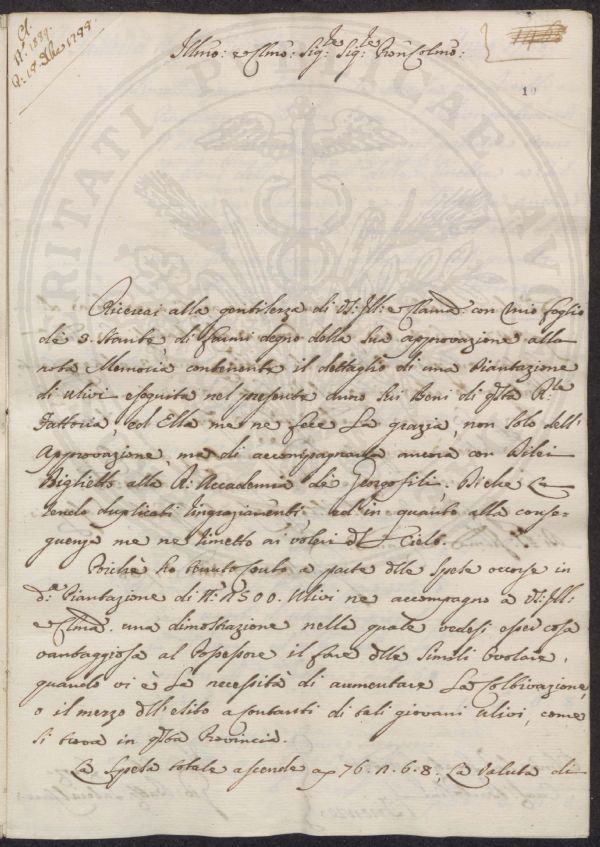 Cl.
N. 1889.
A: 18 Xbre 1788
Illmo: e Clmo: Sigre Sigre Pron Colmo:
10
PUBLICAE
Ricercai alla gentilezza di VS: Ill: e Clarma. con mio foglio
de 3. Stante di farmi degno della sua approvazione alla
nota Memoria contenente il dettaglio di una Piantazione
di Ulivi eseguita nel presente anno sui Beni di qsta Rle
Fattoria, ed Ella me ne fece la grazia, non solo dell'
Approvazione, ma di accompagnarla ancora con
Biglietto alla R: Accademia de Georgofili.
rendo duplicati ringraziamenti ed in quanto alla conse-
guenza me ne rimetto ai voleri del Cielo.
Perchè ho tenuto conto a parte delle spese occorse in
da Piantazione di N: 1500. Ulivi ne accompagno a VS: Ill:
e Clma. una dimostrazione nella quale vedesi esser cosa
vantaggiosa al Possessore il fare delle simili Ovolare,
quando vi è la necessità di aumentare la Coltivazione,
o il mezzo dell'esito a contanti di tali giovani Ulivi, come
si trova in qsta Provincia.
La spesa totale ascende a 76. 6. 8. La valuta di